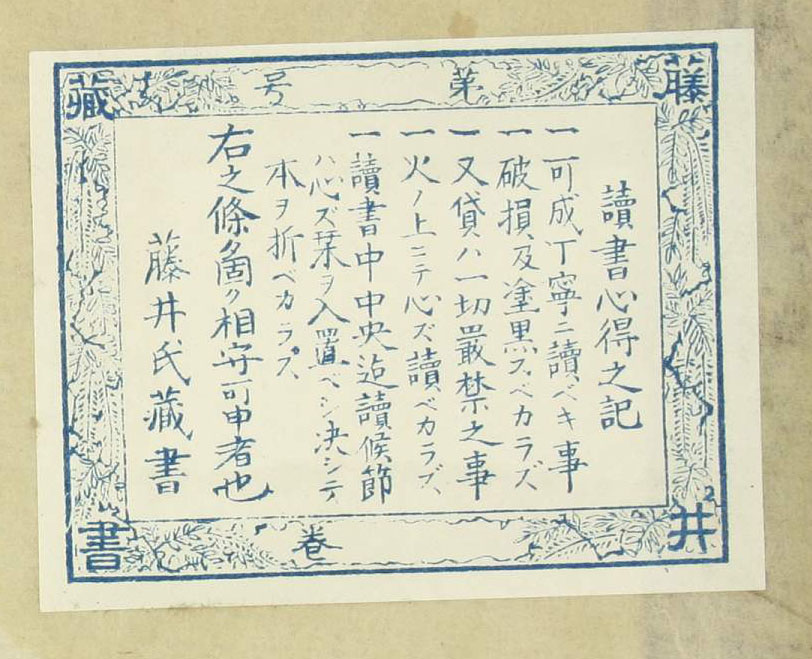 藤井藏書
第 号
卷
讀書心得之記
一可成丁寧ニ讀ベキ事
一破損及塗黒スベカラズ、
一又貸ハ一切嚴禁之事
一火ノ上ニテ心ズ讀ベカラズ、
一讀書中中央迄讀候節
ハ心ズ栞ヲ入置ベシ決シテ
本ヲ折ベカラズ、
右之條々箇ク相守可申者也
藤井氏藏書